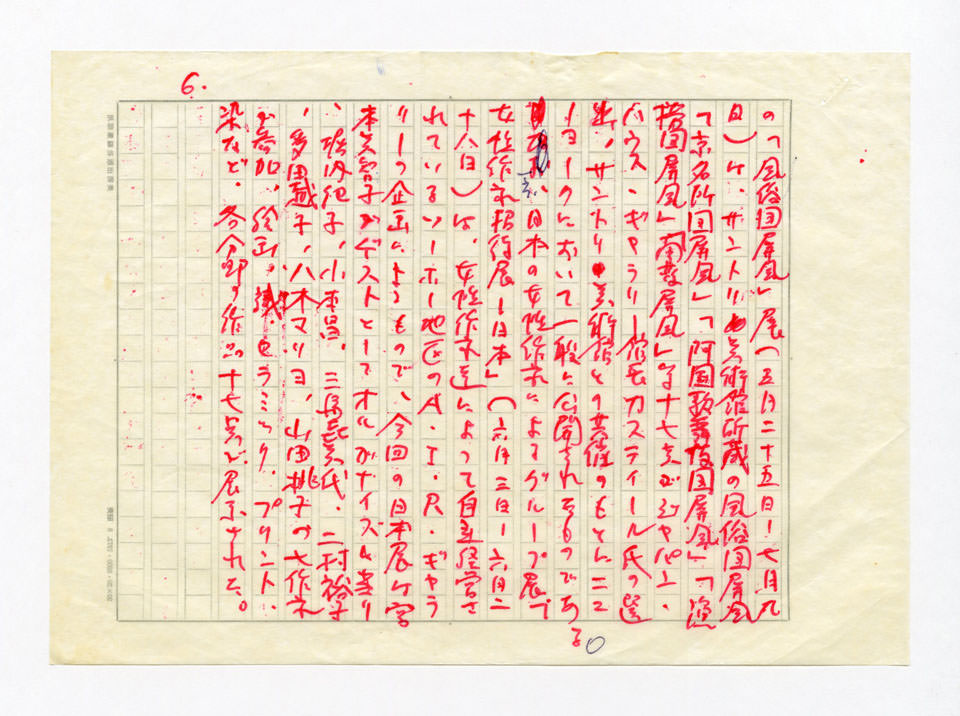 6.
の「風俗図屏風」展(五月二十五日ー七月九
日)は、サントリー美術館所蔵の風俗図屏風
「京名所図屏風」「阿国歌舞伎図屏風」「
図屏風」「南蛮屏風」等十七点がジャパン・
ハウス・ギャラリー館長カスティール氏の選
サントリー美術館との共催のもとにニュ
ーヨークにおいて一般に公開されるものであ
る。
日本の女性作家によるグループ展で
女性作家招待展ー日本」(六月三日ー六月二
十八日)は、女性作家達によって自主経営さ
れているソーホー地区のA・I・R・ギャラ
リーの企画によるもので、今回の日本展は宇
本美智子がゲストとしてオルガナイズに当り
、堀内紀子、小本昌、三島喜美代、二村裕子
、多田子、八木マリヨ、山田桃子の七作家
が参加、絵画、セラミック、プリント、
染など、各分野の作品十七点が展示された。